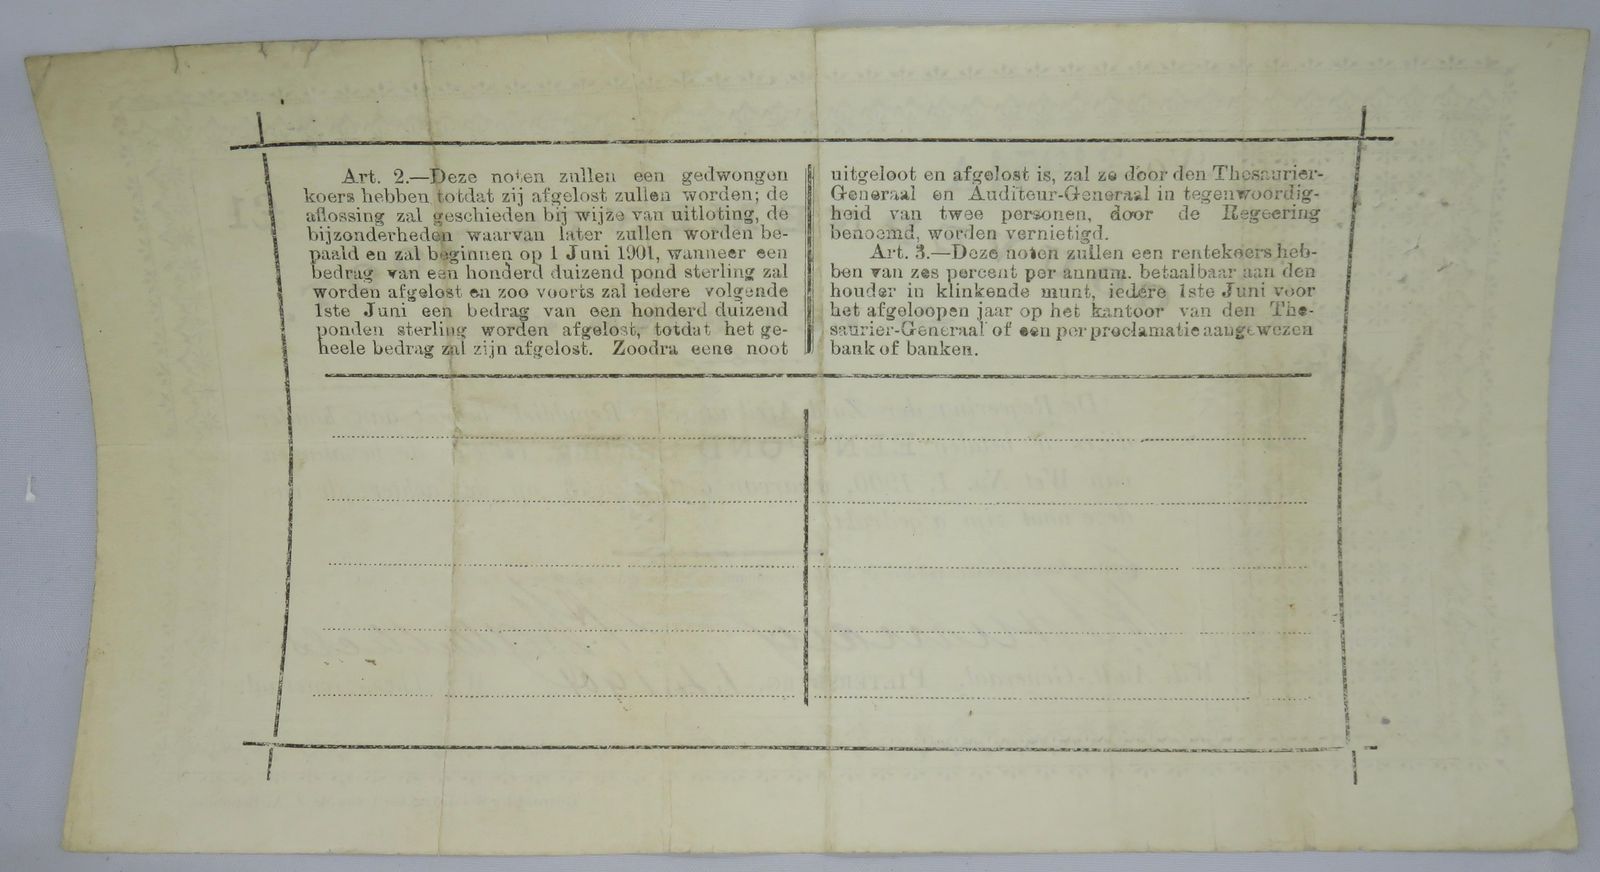 Art. 2.—Deze noten zullen een gedwongen
koers hebben totdat zij afgelost zullen worden; de
aflossing zal geschieden bij wijze van uitloting, de
bijzonderheden waarvan later zullen worden be-
paald en zal beginnen op 1 Juni 1901, wanneer een
bedrag van een honderd duizend pond sterling zal
worden afgelost en zoo voorts zal iedere volgende
1ste Juni een bedrag van een honderd duizend
ponden sterling worden afgelost, totdat het ge-
heele bedrag zal zijn afgelost. Zoodra eene noot
uitgeloot en afgelost is, zal ze door den Thesaurier-
Generaal en Auditeur-Generaal in tegenwoordig-
heid van twee personen, door de Regeering
benoemd, worden vernietigd.
Art. 3.—Deze noten zullen een rentekoers heb-
ben van zes percent per annum. betaalbaar aan den
houder in klinkende munt, iedere 1ste Juni voor
het afgeloopen jaar op het kantoor van den The-
saurier-Generaal of een per proclamatie aangewezen
bank of banken.